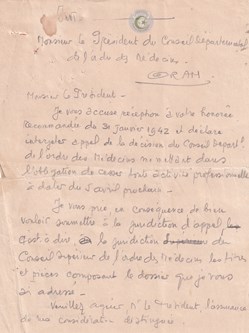 Monsieur le Président du Conseil Départemental
de l'ordre des Médecins
ORAN
Monsieur le Président -
Je vous accuse réception à votre honorée
recommandée du 30 Janvier 1942 et déclare
interjeter appel de la décision du Conseil Départ.
de l'ordre des Médecins me mettant dans
l'obligation de cesser toute activité professionnelle
à dater du 5 avril prochain -
Je vous prie en conséquence de bien
vouloir soumettre à la juridiction d'appel
c'est à dire à la juridiction du
Conseil Supérieur de l'ordre des Médecins les titres
et pièces composant le dossier que je vous
ai adressé -
Veuillez agréer M. le Président l'assurance
de ma considération distinguée